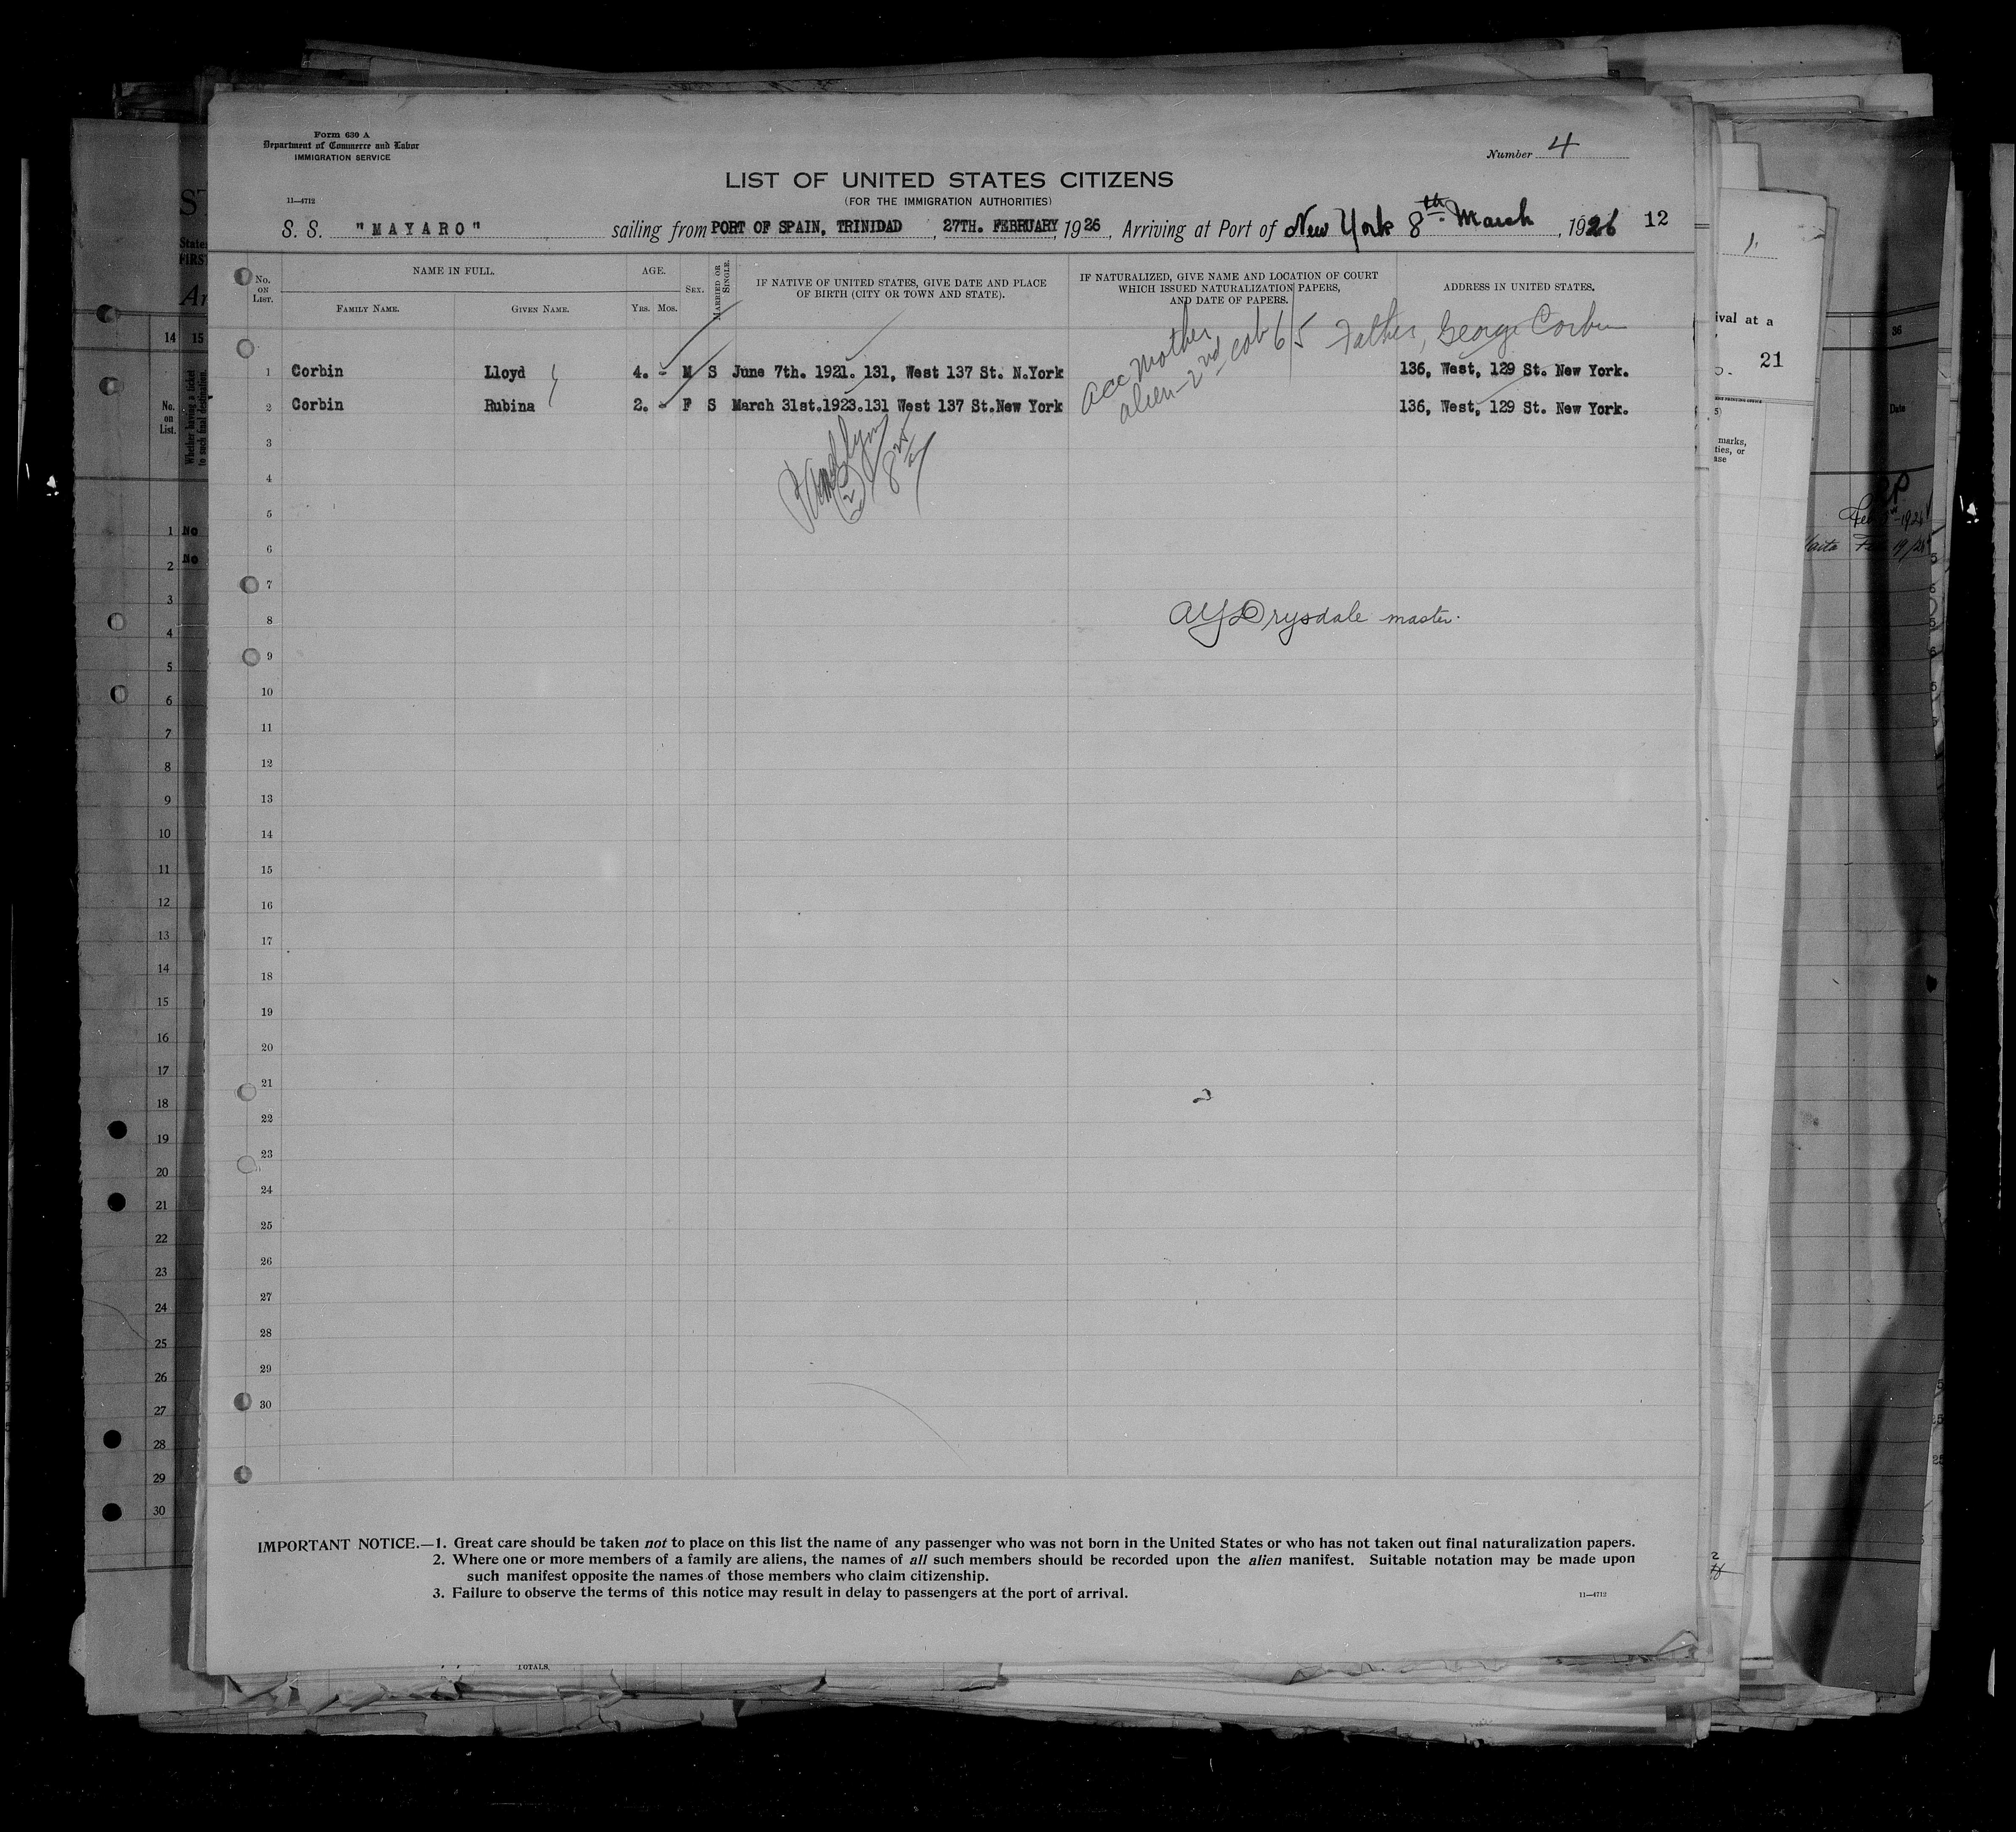 Form 630 A
Department of Commerce and Labor
IMMIGRATION SERVICE
Number 4
LIST OF UNITED STATES CITIZENS
(FOR THE IMMIGRATION AUTHORITIES)
11—4712
S. S. "MAYARO" sailing from PORT OF SPAIN, TRINIDAD, 27TH. FEBRUARY, 1926, Arriving at Port of New York 8th. March, 1926 12
No. ON LIST.
NAME IN FULL.
FAMILY NAME.
GIVEN NAME.
AGE.
YRS. MOS.
SEX.
MARRIED OR SINGLE.
IF NATIVE OF UNITED STATES, GIVE DATE AND PLACE
OF BIRTH (CITY OR TOWN AND STATE).
IF NATURALIZED, GIVE NAME AND LOCATION OF COURT
WHICH ISSUED NATURALIZATION PAPERS,
AND DATE OF PAPERS.
ADDRESS IN UNITED STATES.
acc mother
alien - 2nd cab 6/5
Father, George Corbin
1 Corbin Lloyd 4. - M S June 7th. 1921. 131, West 137 St. N.York 136, West, 129 St. New York.
2 Corbin Rubina 2. - F S March 31st.1923.131 West 137 St.New York 136, West, 129 St. New York.
3
4
5
6
7
8
AYDrysdale master.
9
10
11
12
13
14
15
16
17
18
19
20
21
22
23
24
25
26
27
28
29
30
IMPORTANT NOTICE.—1. Great care should be taken not to place on this list the name of any passenger who was not born in the United States or who has not taken out final naturalization papers.
2. Where one or more members of a family are aliens, the names of all such members should be recorded upon the alien manifest. Suitable notation may be made upon
such manifest opposite the names of those members who claim citizenship.
3. Failure to observe the terms of this notice may result in delay to passengers at the port of arrival.
11—4712
TOTALS,